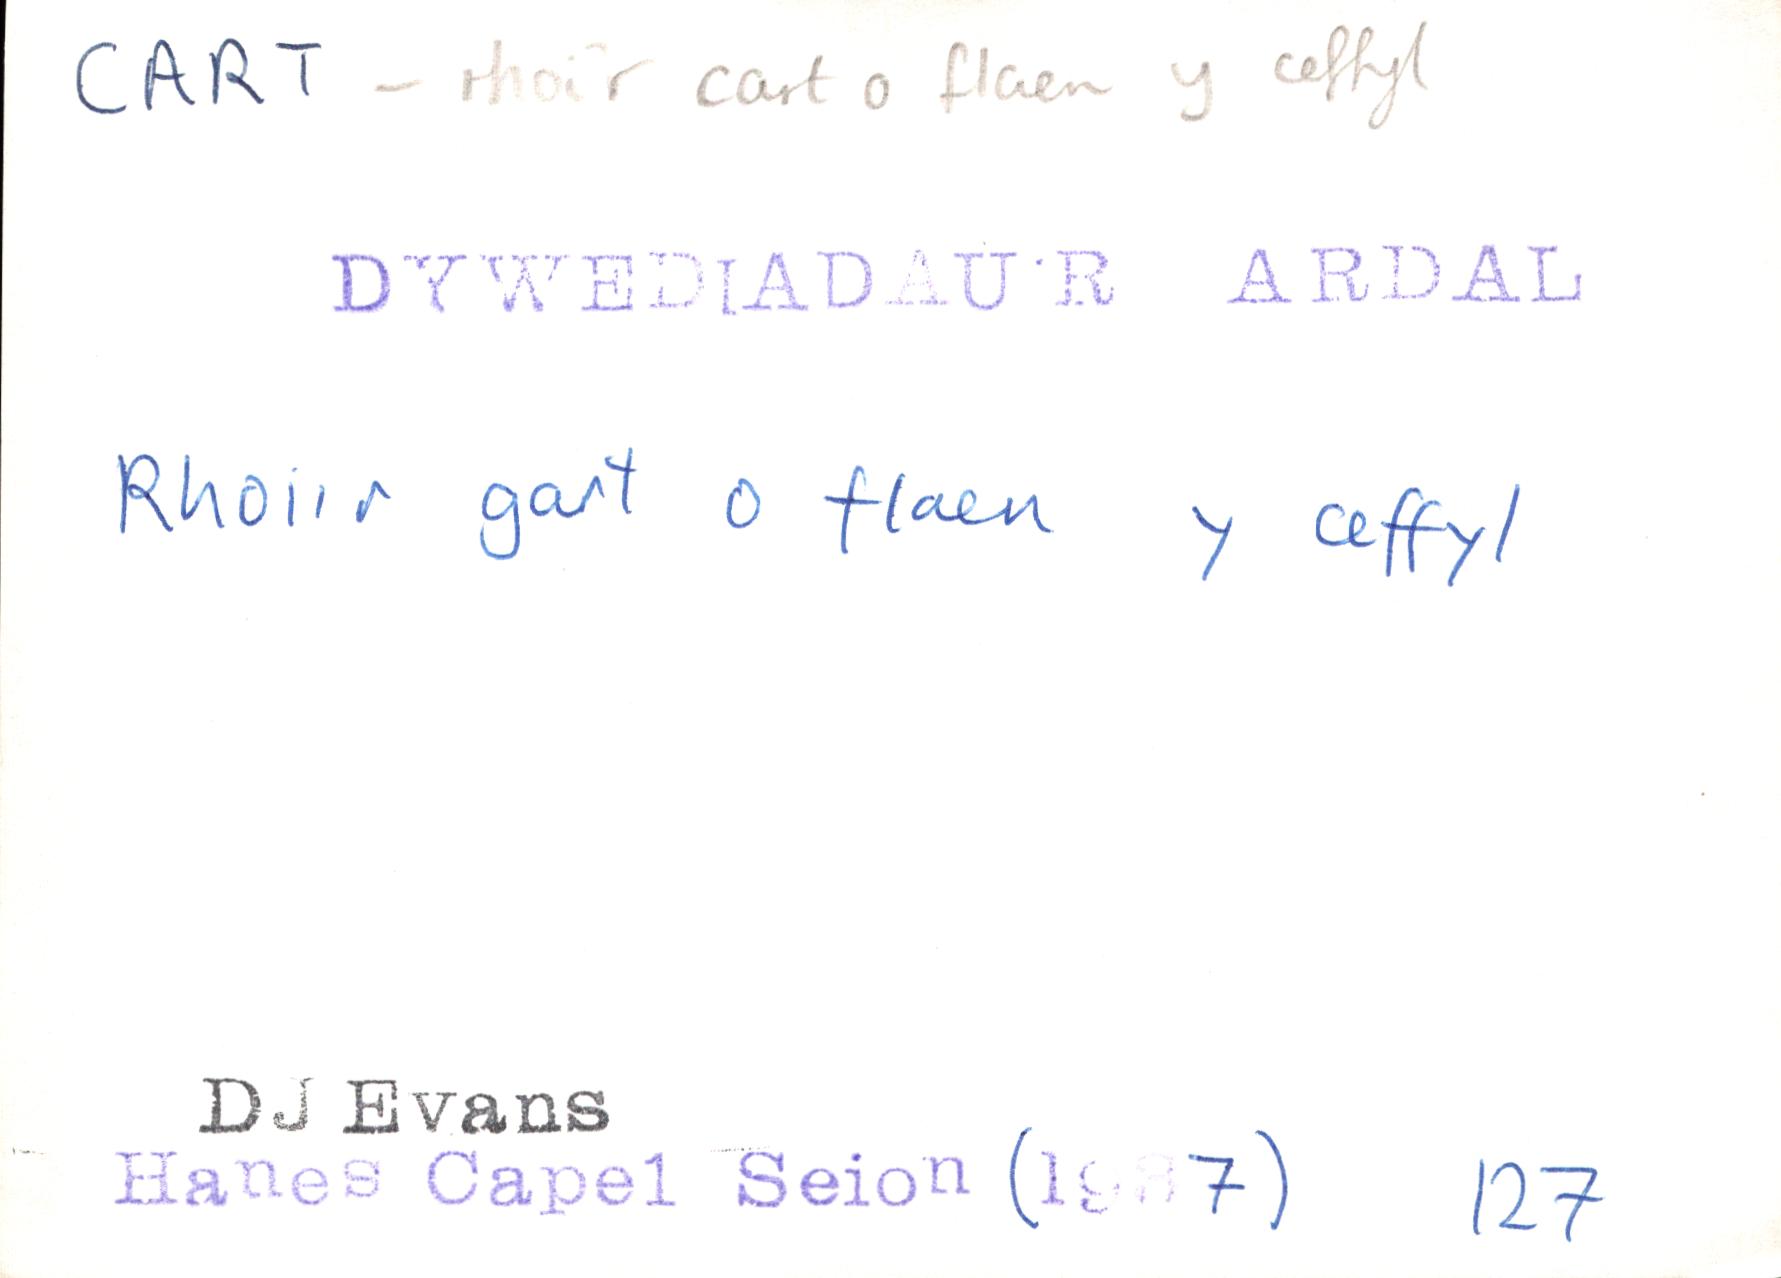 CART - rhoi'r cart o flaen y ceffyl
DYWEDIADAU'R ARDAL
Rhoi'r gart o flaen y ceffyl
DJ Evans
Hanes Capel Seion (1987) 127